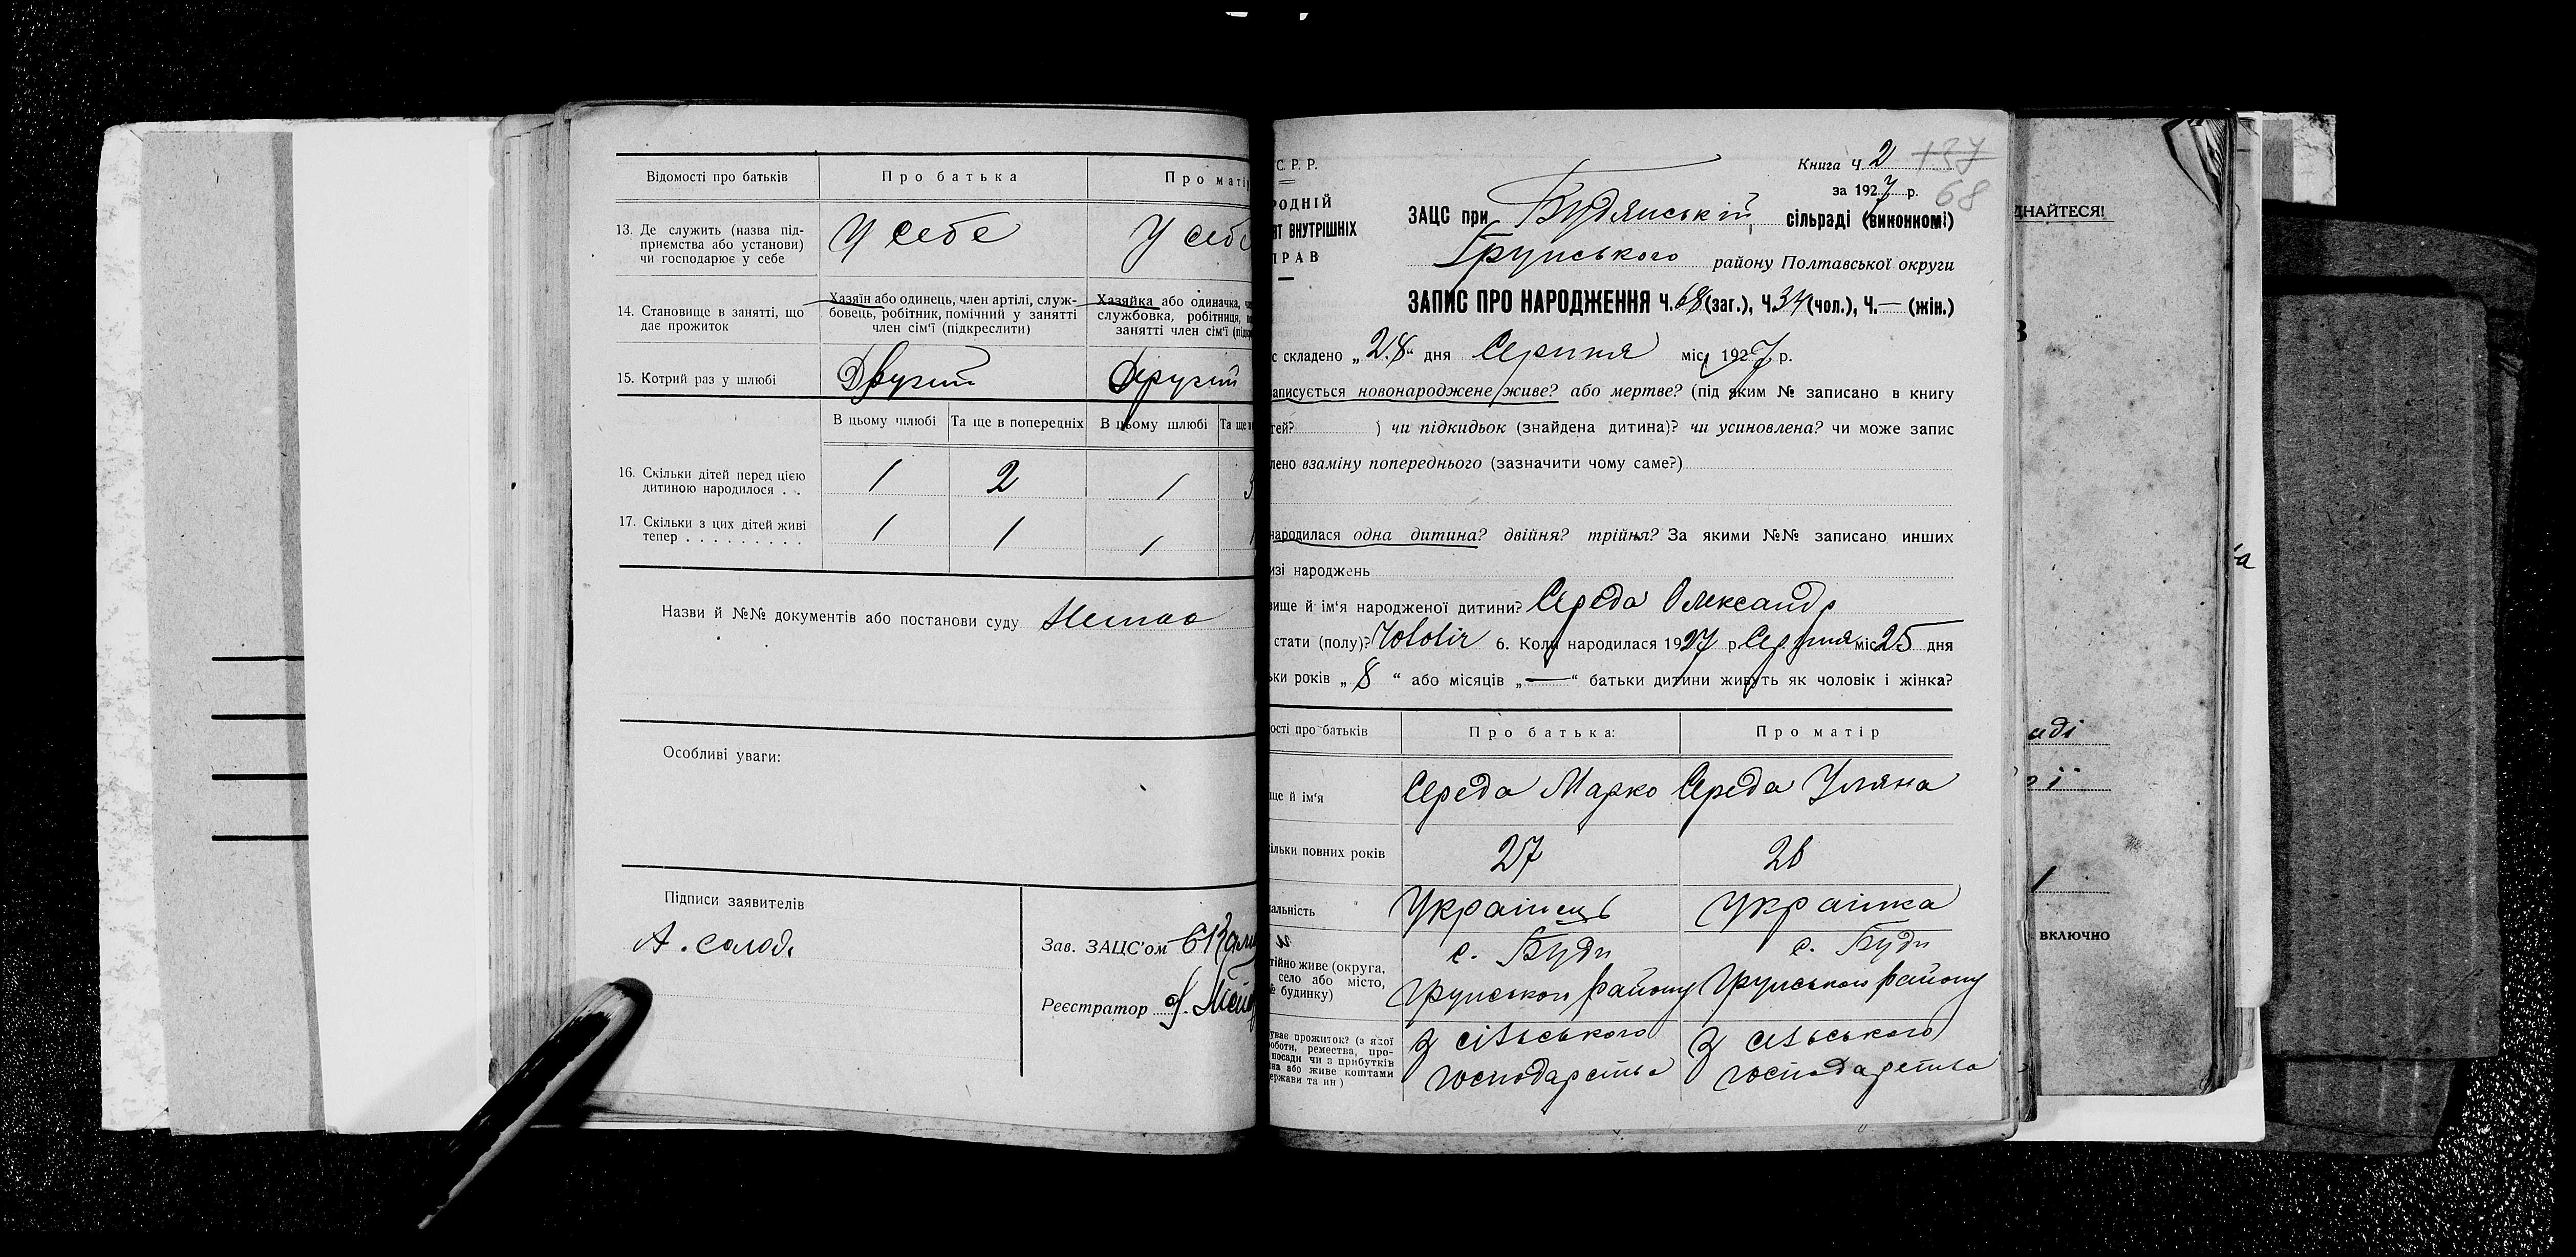 Відомості про батьків
Про батька
Про матір
13. Де служить (назва під-
приємства або установи)
чи господарює у себе
У себе
У себе
14. Становище в занятті, що
дає прожиток
Хазяїн або одинець, член артілі, служ-
бовець, робітник, помічний у занятті
член сім'ї (підкреслити)
Хазяйка або одиначка,
службовка, робітниця,
занятті член сім'ї
15. Котрий раз у шлюбі
Другий
Другий
В цьому шлюбі
Та ще в попередніх
В цьому шлюбі
Та ще в
16. Скільки дітей перед цією
дитиною народилося . .
1
2
1
3
17. Скільки з цих дітей живі
тепер . . . . . . . . .
1
1
1
1
Назви й №№ документів або постанови суду Немає
Особливі уваги:
Підписи заявителів
А. солод.
Зав. ЗАЦС'ом
Реєстратор
С. Р. Р.
РОДНІЙ
ЯТ ВНУТРІШНІХ
ПРАВ
Книга Ч. 2
127
за 1927 р.
68
ЗАЦС при Будянській сільраді (виконкомі)
Грунського району Полтавської округи
ЗАПИС ПРО НАРОДЖЕННЯ Ч. 68 (заг.), Ч. 34 (чол.), Ч. — (жін.)
с складено „28“ дня Серпня міс. 1927 р.
аписується новонароджене живе? або мертве? (під яким № записано в книгу
тей? ) чи підкидьок (знайдена дитина)? чи усиновлена? чи може запис
лено взаміну попереднього (зазначити чому саме?)
народилася одна дитина? двійня? трійня? За якими №№ записано инших
изі народжень
вище й ім'я народженої дитини? Середа Олександр
стати (полу)? 6. Коли народилася 1927 р. Серпня міс. 25 дня
ьки років „8“ або місяців „—“ батьки дитини живуть як чоловік і жінка?
ості про батьків
Про батька:
Про матір
ще й ім'я
Середа Марко
Середа Уляна
ільки повних років
27
26
альність
Українець
Українка
тійно живе (округа,
село або місто,
№ будинку)
с. Буди
Грунського району
с. Буди
Грунського району
уває прожиток? (з якої
оботи, ремества, про-
посади чи з прибутків
ва або живе коштами
ержави та ин)
З сільського
господарства
З сільського
господарства
ДНАЙТЕСЯ!
В
аді
ії
1
ВКЛЮЧНО